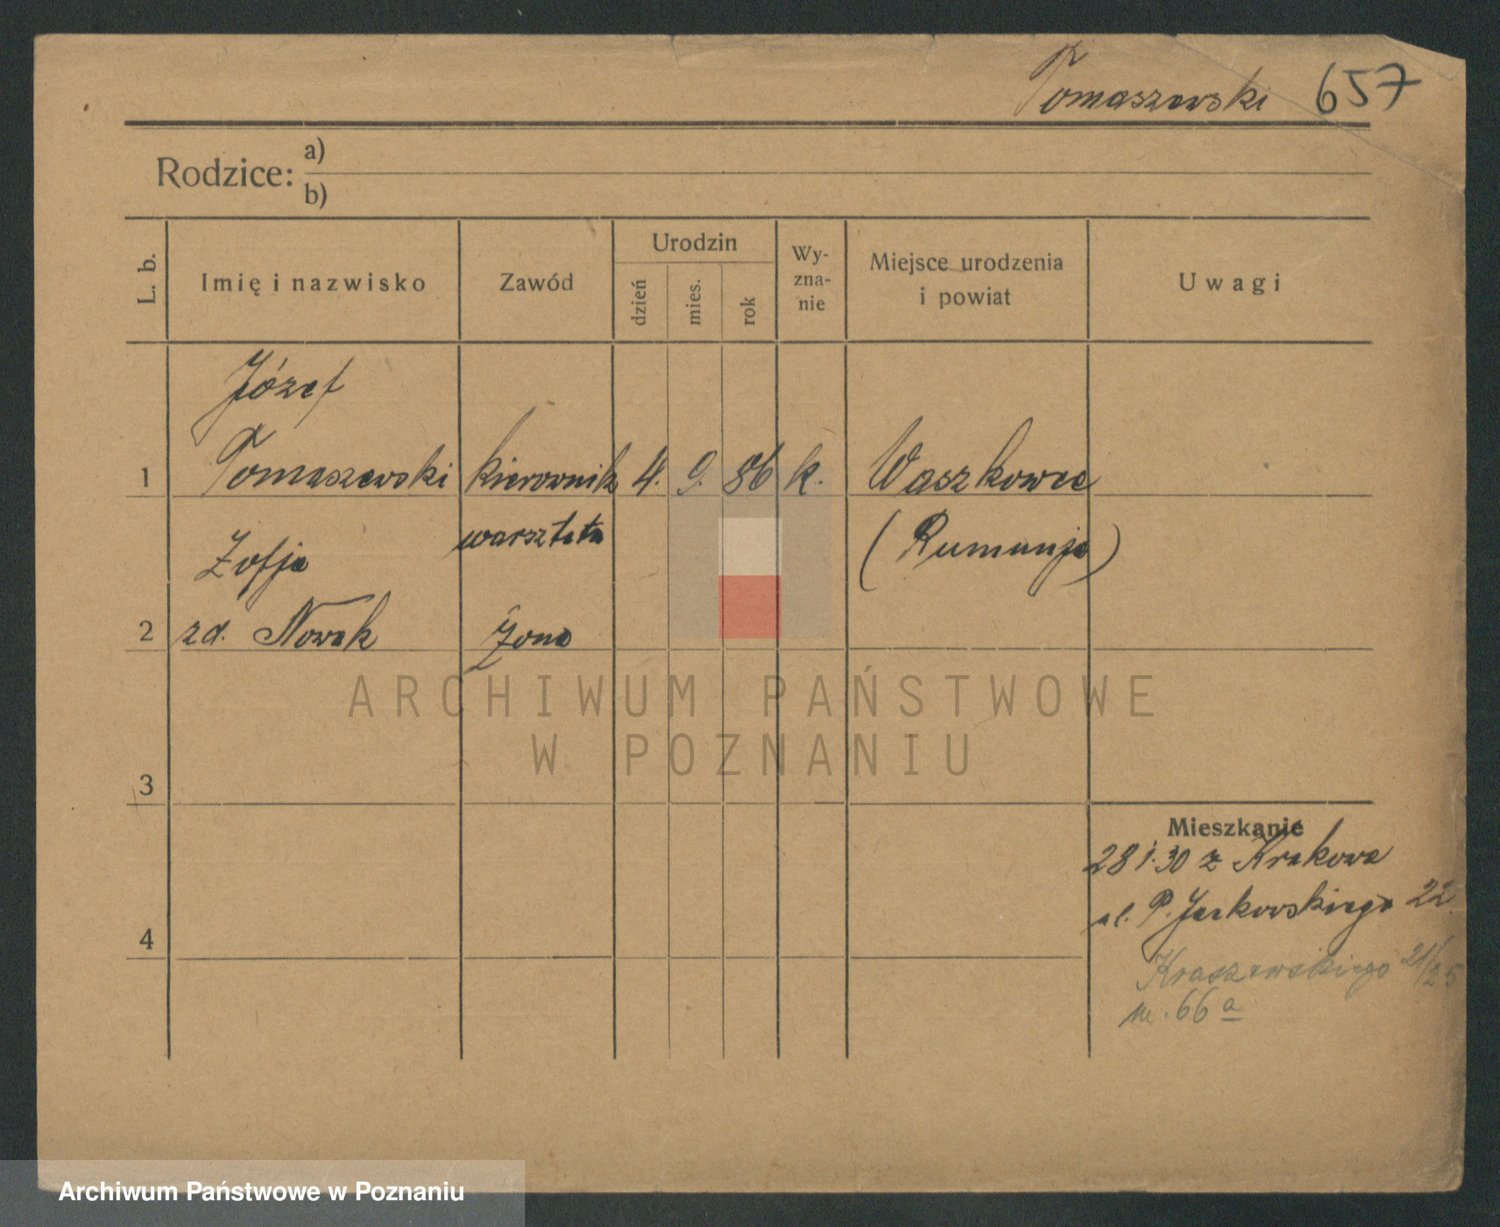 Tomaszewski 657
Rodzice: a)
b)
L. b.
Imię i nazwisko
Zawód
Urodzin
dzień
mies.
rok
Wy-
zna-
nie
Miejsce urodzenia
i powiat
Uwagi
Józef
1 Tomaszewski kierownik 4. 9. 86 k. Waszkowce
warsztatu (Rumunja)
Zofja
2 zd. Nowak Żona
3
4
Mieszkanie
28 1. 30 z Krakowa
ul. P. Jackowskiego 22
Kraszewskiego 21/25
m. 66a
ARCHIWUM PAŃSTWOWE
W POZNANIU
Archiwum Państwowe w Poznaniu